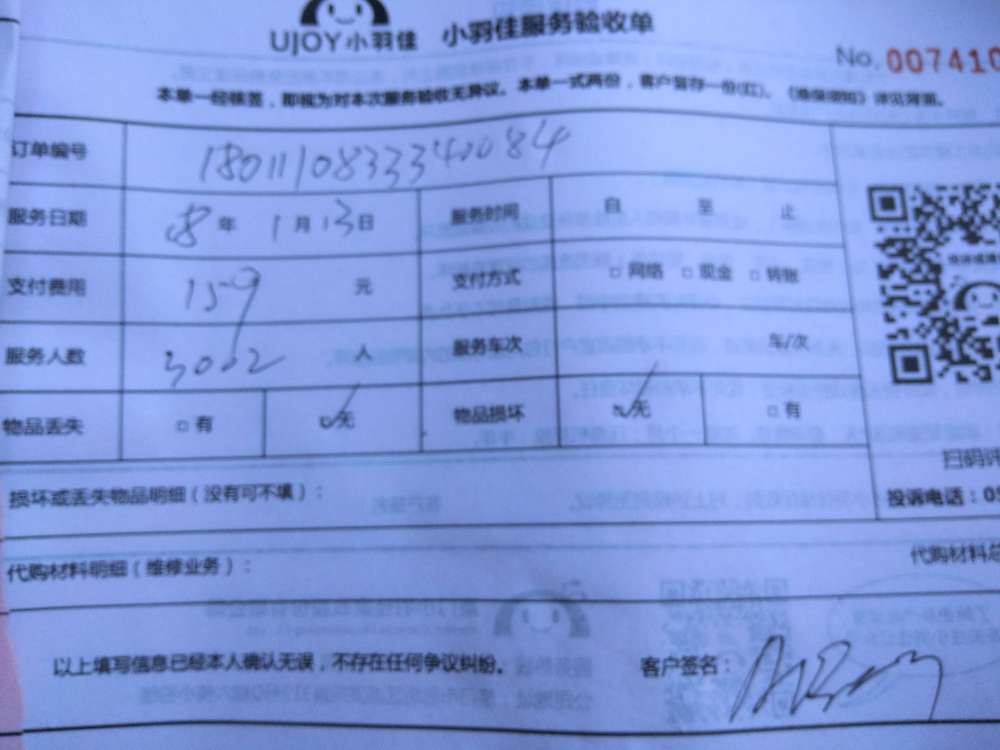 UJOY小羽佳 小羽佳服务验收单
No. 007410
本单一经核签，即视为对本次服务验收无异议。本单一式两份，客户留存一份(红)。《维保须知》详见背面。
订单编号 18011108333400084
服务日期 18年 1月13日 服务时间 自 至 止
支付费用 159 元 支付方式 □网络 □现金 □转账
服务人数 3002 人 服务车次 车/次
物品丢失 □有 ☑无 物品损坏 ☑无 □有
扫码评
损坏或丢失物品明细（没有可不填）：
投诉电话：05
代购材料明细（维修业务）：
代购材料总
以上填写信息已经本人确认无误，不存在任何争议纠纷。 客户签名：